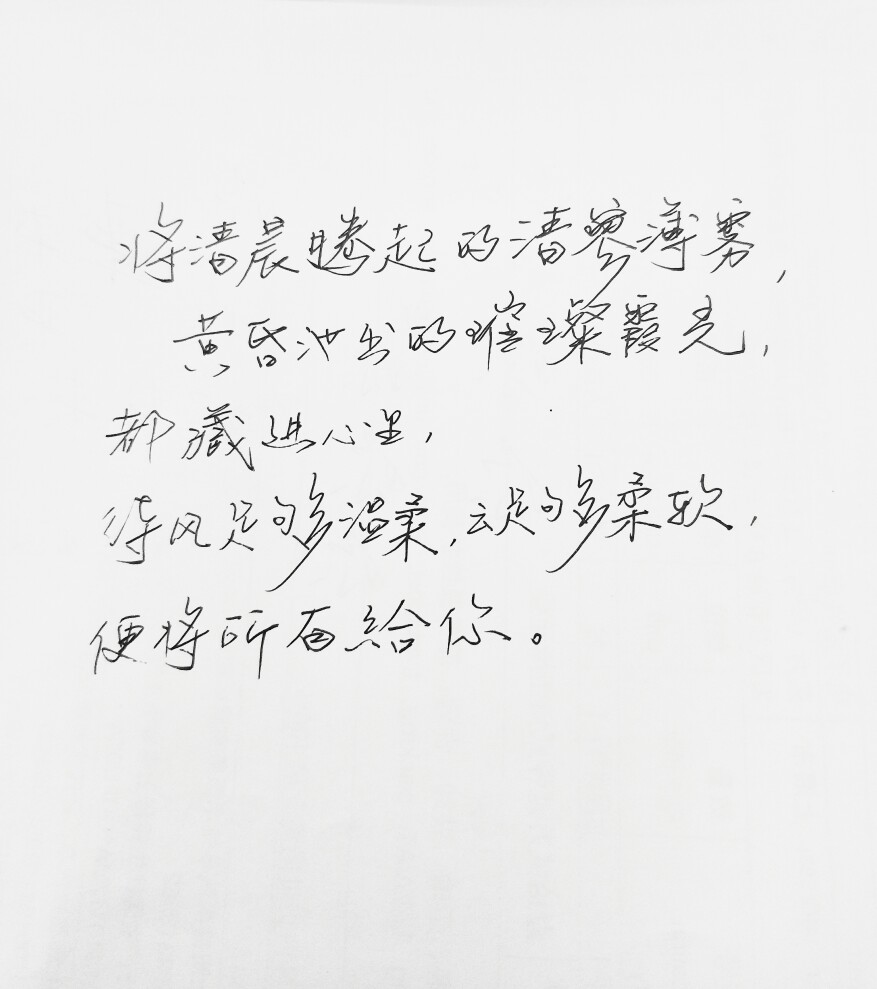 将清晨腾起的清寥薄雾,
黄昏沁出的璀璨霞光,
都藏进心里,
待风足够温柔,云足够柔软,
便将所有給你。